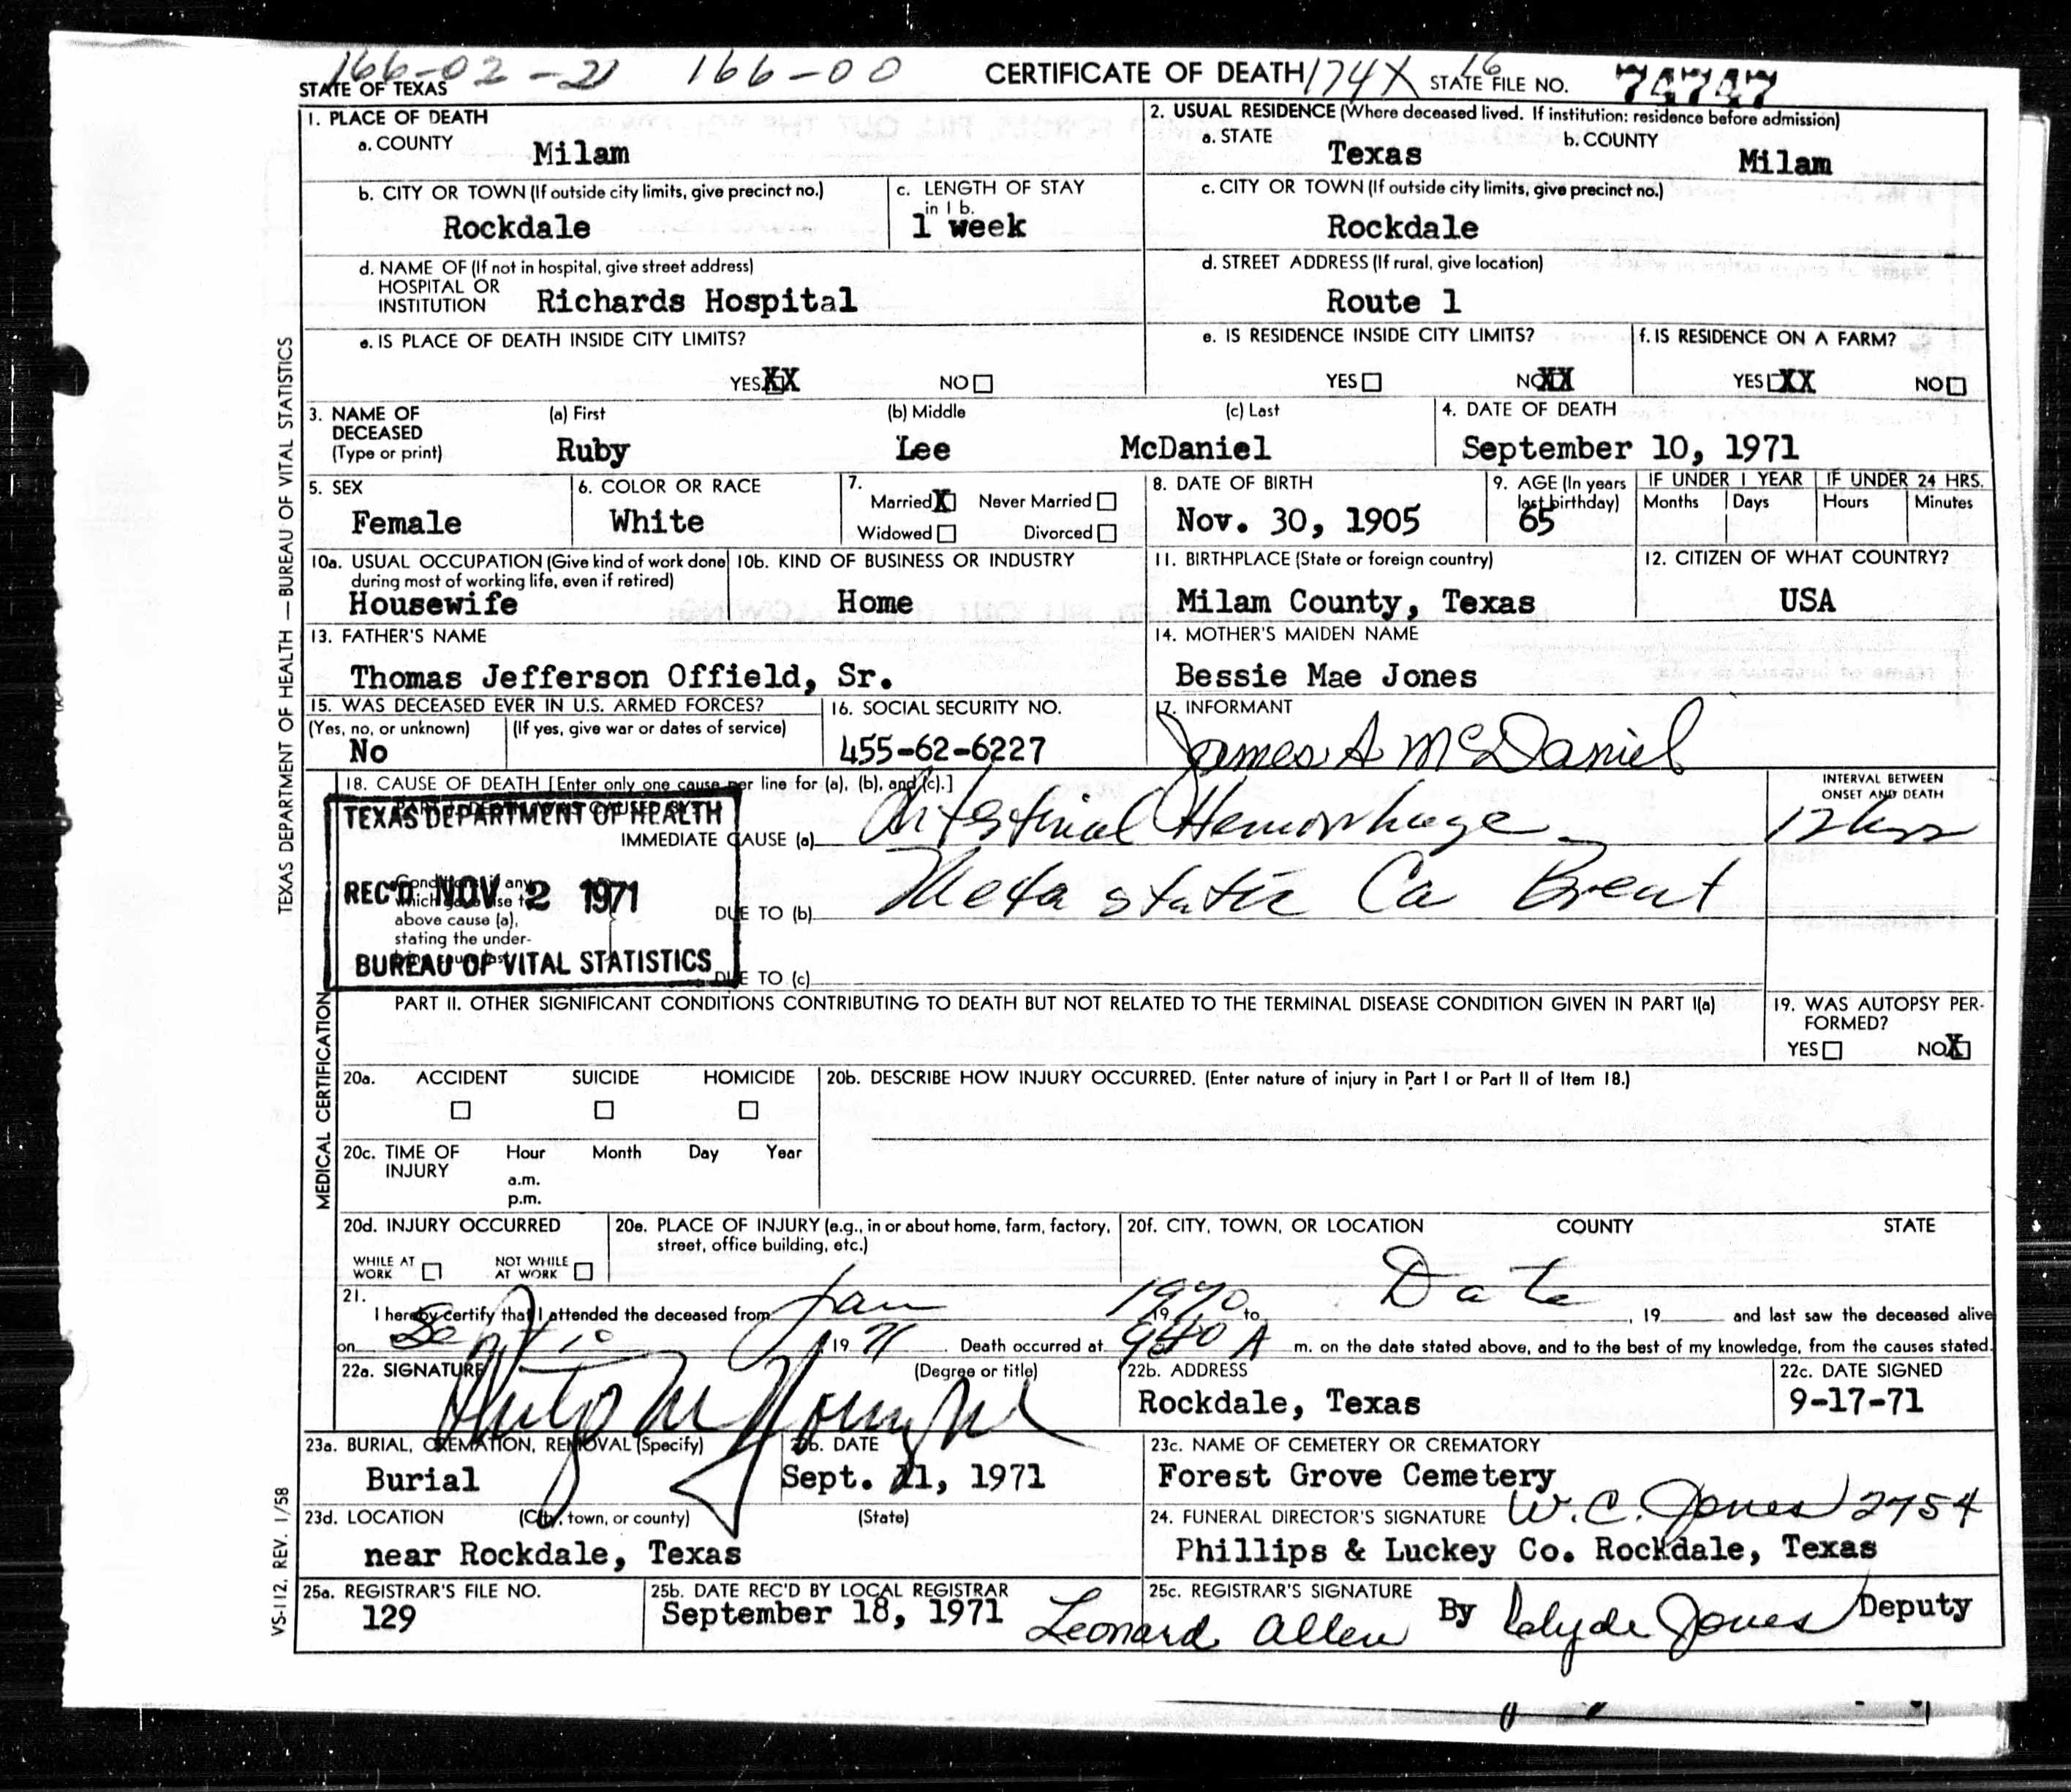 166-02-21 166-00 CERTIFICATE OF DEATH 174X 16 STATE FILE NO. 74747
STATE OF TEXAS
1. PLACE OF DEATH
a. COUNTY Milam
2. USUAL RESIDENCE (Where deceased lived. If institution: residence before admission)
a. STATE Texas b. COUNTY Milam
b. CITY OR TOWN (If outside city limits, give precinct no.)
Rockdale
c. LENGTH OF STAY
in 1 b.
1 week
c. CITY OR TOWN (If outside city limits, give precinct no.)
Rockdale
d. NAME OF (If not in hospital, give street address)
HOSPITAL OR
INSTITUTION Richards Hospital
d. STREET ADDRESS (If rural, give location)
Route 1
e. IS PLACE OF DEATH INSIDE CITY LIMITS?
YES XX NO
e. IS RESIDENCE INSIDE CITY LIMITS?
YES NO XX
f. IS RESIDENCE ON A FARM?
YES XX NO
3. NAME OF (a) First (b) Middle (c) Last
DECEASED
(Type or print) Ruby Lee McDaniel
4. DATE OF DEATH
September 10, 1971
5. SEX
Female
6. COLOR OR RACE
White
7.
Married X Never Married
Widowed Divorced
8. DATE OF BIRTH
Nov. 30, 1905
9. AGE (In years
last birthday)
65
IF UNDER 1 YEAR
Months Days
IF UNDER 24 HRS.
Hours Minutes
10a. USUAL OCCUPATION (Give kind of work done
during most of working life, even if retired)
Housewife
10b. KIND OF BUSINESS OR INDUSTRY
Home
11. BIRTHPLACE (State or foreign country)
Milam County, Texas
12. CITIZEN OF WHAT COUNTRY?
USA
13. FATHER'S NAME
Thomas Jefferson Offield, Sr.
14. MOTHER'S MAIDEN NAME
Bessie Mae Jones
15. WAS DECEASED EVER IN U.S. ARMED FORCES?
(Yes, no, or unknown) (If yes, give war or dates of service)
No
16. SOCIAL SECURITY NO.
455-62-6227
17. INFORMANT
James A McDaniel
18. CAUSE OF DEATH [Enter only one cause per line for (a), (b), and (c).]
INTERVAL BETWEEN
ONSET AND DEATH
TEXAS DEPARTMENT OF HEALTH
IMMEDIATE CAUSE (a) Intestinal Hemorrhage 12 hrs
REC'D NOV 2 1971
above cause (a),
stating the under-
DUE TO (b) Metastatic Ca Breast
BUREAU OF VITAL STATISTICS
DUE TO (c)
PART II. OTHER SIGNIFICANT CONDITIONS CONTRIBUTING TO DEATH BUT NOT RELATED TO THE TERMINAL DISEASE CONDITION GIVEN IN PART I(a)
19. WAS AUTOPSY PER-
FORMED?
YES NO X
20a. ACCIDENT SUICIDE HOMICIDE
20b. DESCRIBE HOW INJURY OCCURRED. (Enter nature of injury in Part I or Part II of Item 18.)
20c. TIME OF Hour Month Day Year
INJURY
a.m.
p.m.
20d. INJURY OCCURRED
WHILE AT NOT WHILE
WORK AT WORK
20e. PLACE OF INJURY (e.g., in or about home, farm, factory,
street, office building, etc.)
20f. CITY, TOWN, OR LOCATION COUNTY STATE
21.
I hereby certify that I attended the deceased from Jan 1970 19 to Date, 19 and last saw the deceased alive
on Sept 10 19 71. Death occurred at 940 A m. on the date stated above, and to the best of my knowledge, from the causes stated.
22a. SIGNATURE (Degree or title)
22b. ADDRESS
Rockdale, Texas
22c. DATE SIGNED
9-17-71
23a. BURIAL, CREMATION, REMOVAL (Specify)
Burial
23b. DATE
Sept. 11, 1971
23c. NAME OF CEMETERY OR CREMATORY
Forest Grove Cemetery
23d. LOCATION (City, town, or county) (State)
near Rockdale, Texas
24. FUNERAL DIRECTOR'S SIGNATURE W.C. Jones 2754
Phillips & Luckey Co. Rockdale, Texas
25a. REGISTRAR'S FILE NO.
129
25b. DATE REC'D BY LOCAL REGISTRAR
September 18, 1971
25c. REGISTRAR'S SIGNATURE
Leonard Allen By Clyde Jones Deputy
TEXAS DEPARTMENT OF HEALTH — BUREAU OF VITAL STATISTICS
MEDICAL CERTIFICATION
VS-112, REV. 1/58